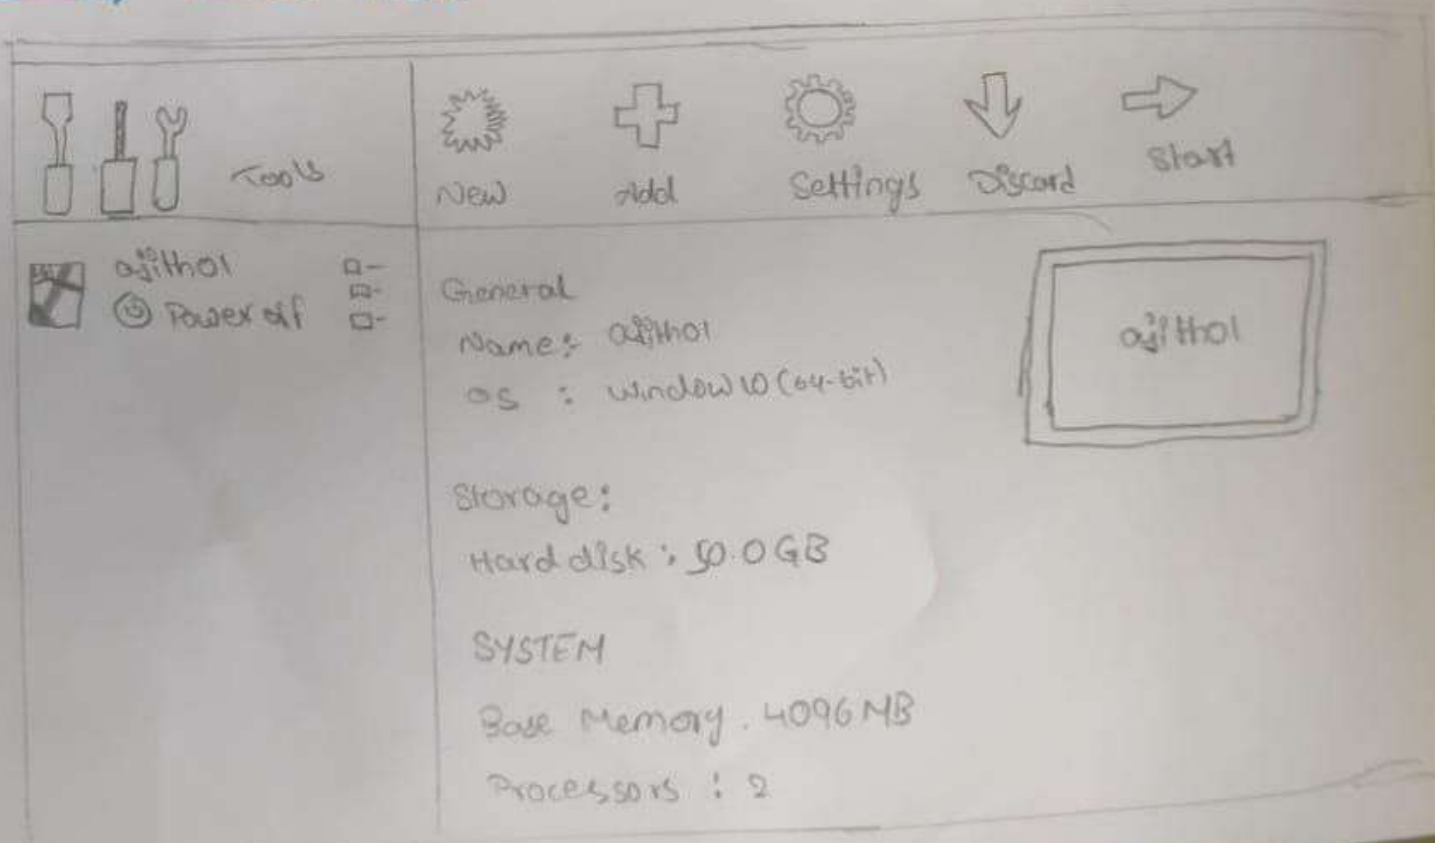 Tools
New
Add
Settings
Discard
Start
ajith01
Power off
General
Name: ajith01
OS : Window 10 (64-bit)
ajith01
Storage:
Hard disk : 50.0GB
SYSTEM
Base Memory. 4096 MB
Processors : 2